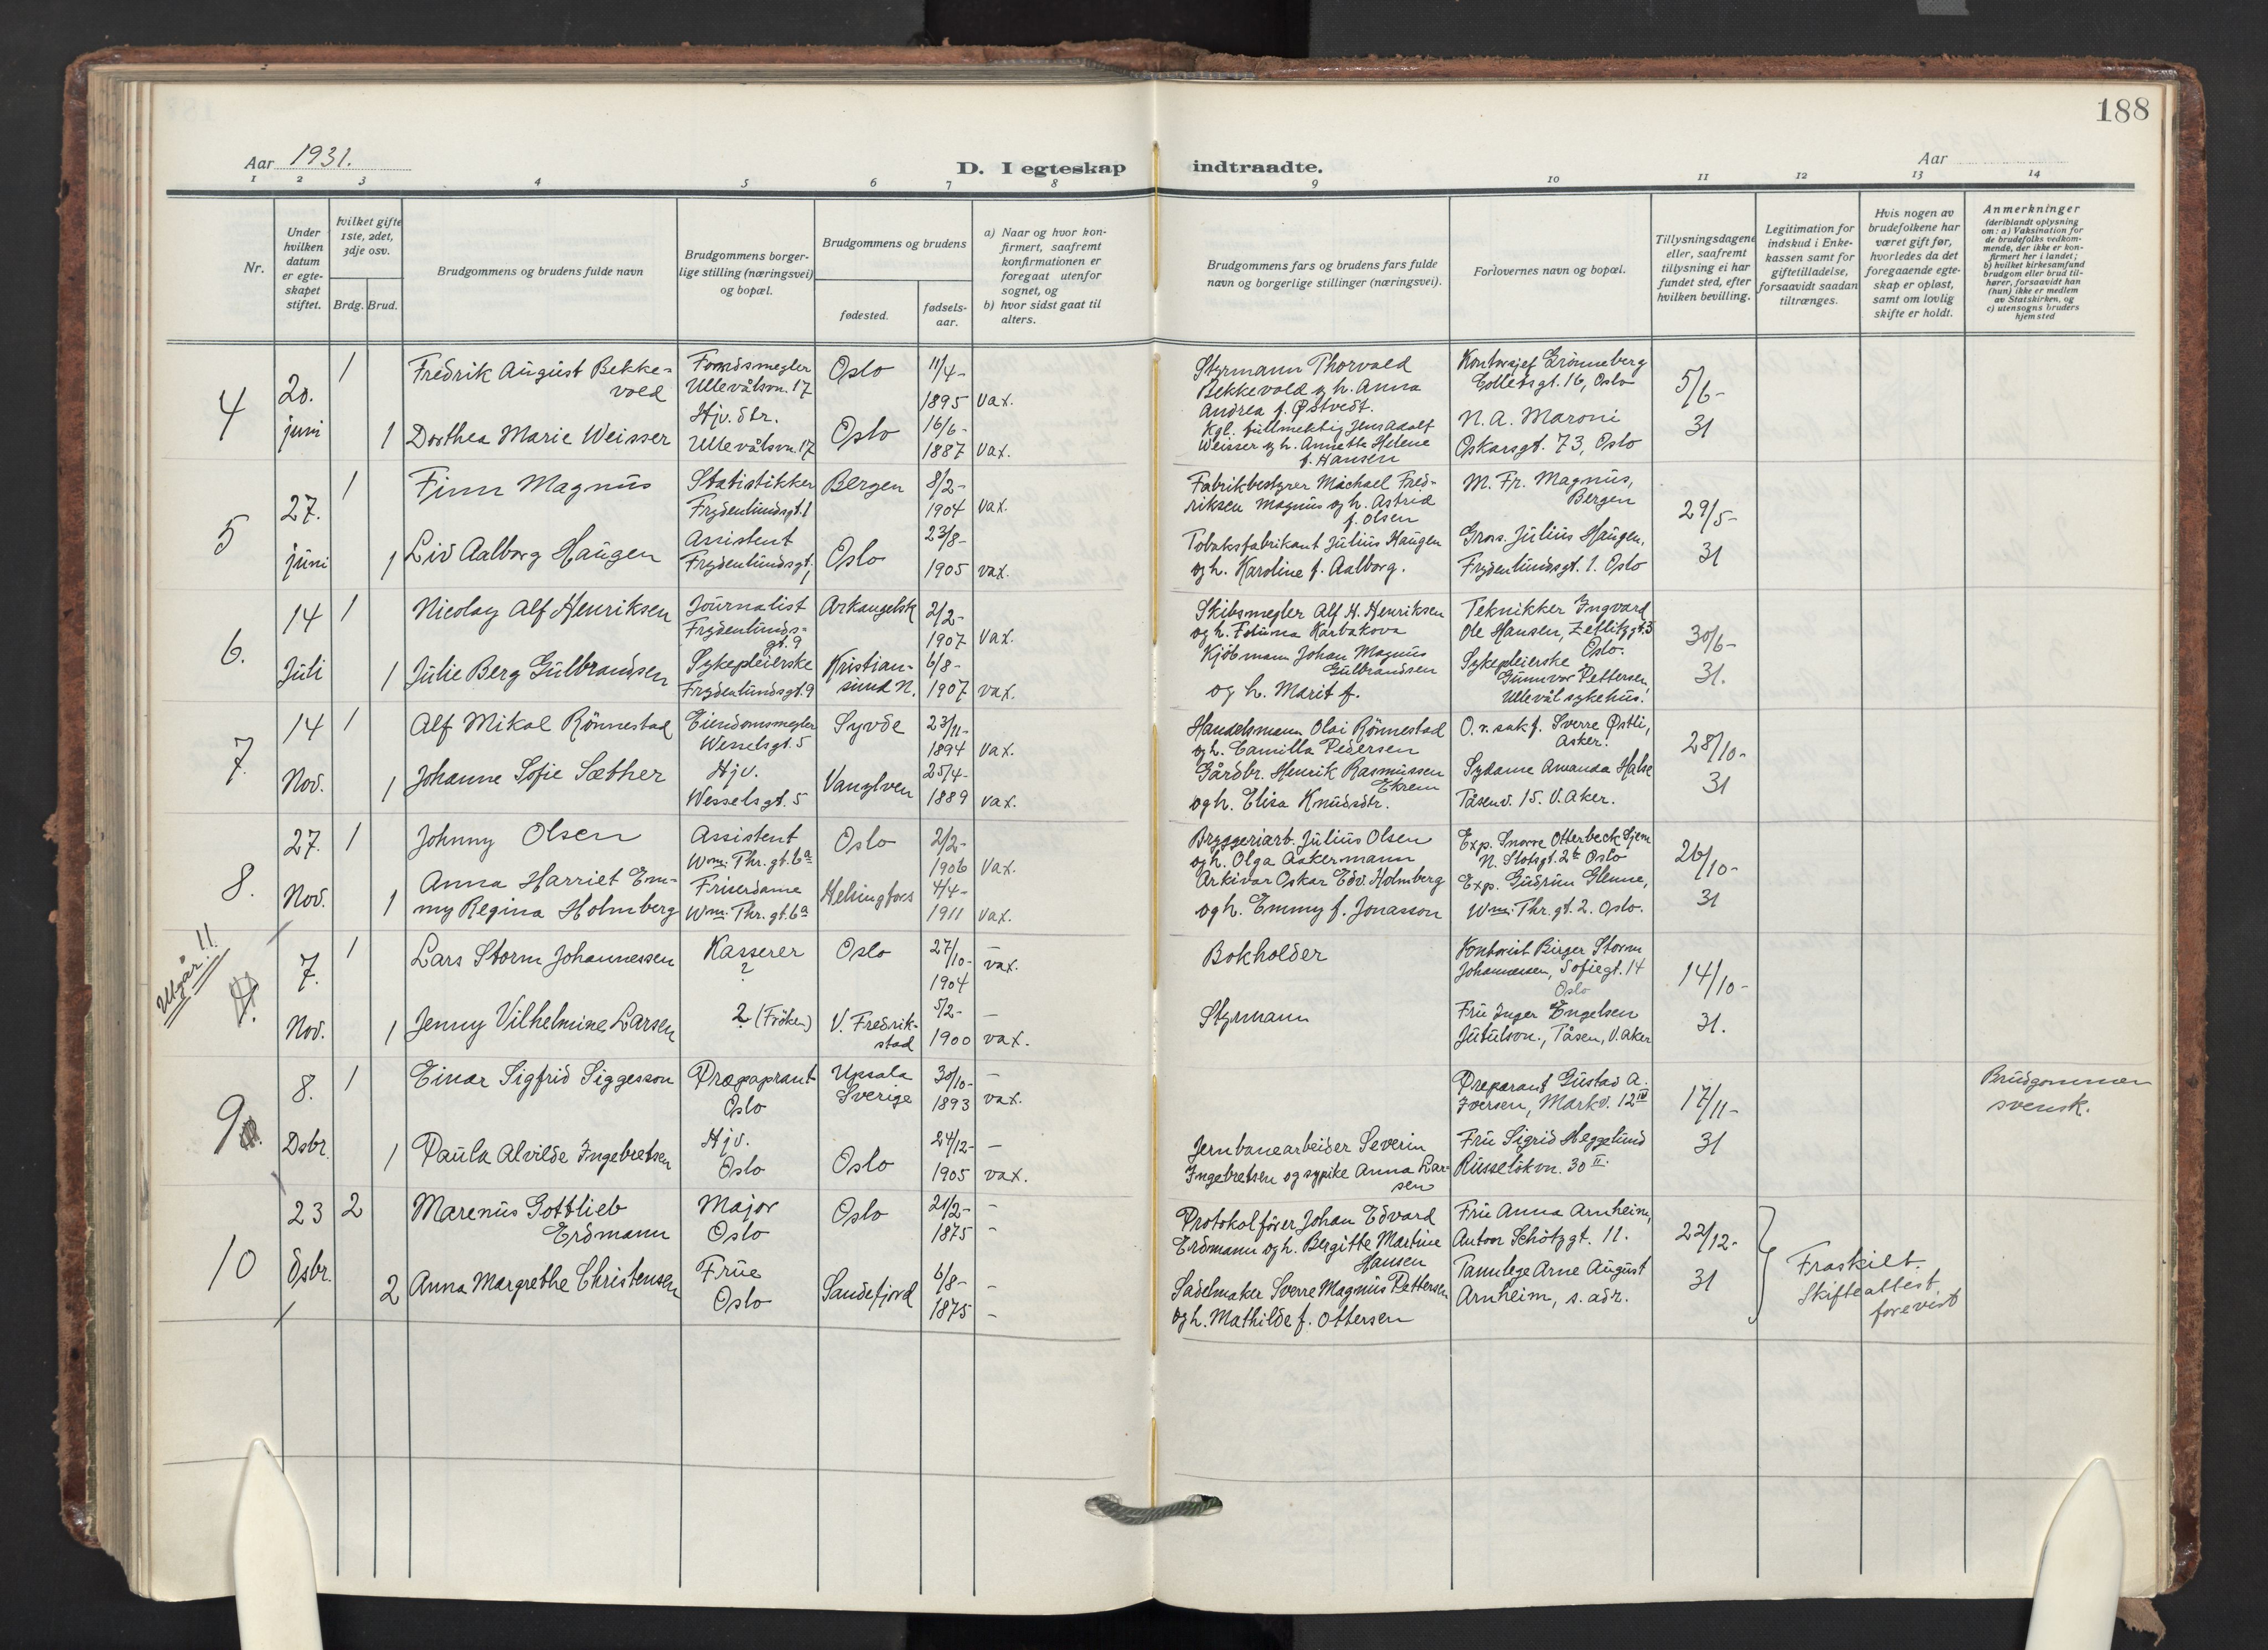 188
Aar 1931.
D. I egteskap indtraadte.
Aar
1 2 3 4 5 6 7 8 9 10 11 12 13 14
Nr.
Under hvilken datum er egteskapet stiftet.
hvilket gifte 1ste, 2det, 3dje osv.
Brdg. Brud.
Brudgommens og brudens fulde navn
Brudgommens borgerlige stilling (næringsvei) og bopæl.
Brudgommens og brudens
fødested.
fødselsaar.
a) Naar og hvor konfirmert, saafremt konfirmationen er foregaat utenfor sognet, og
b) hvor sidst gaat til alters.
Brudgommens fars og brudens fars fulde navn og borgerlige stillinger (næringsvei).
Forlovernes navn og bopæl.
Tillysningsdagene eller, saafremt tillysning ei har fundet sted, efter hvilken bevilling.
Legitimation for indskud i Enkekassen samt for giftetilladelse, forsaavidt saadan tiltrænges.
Hvis nogen av brudefolkene har været gift før, hvorledes da det foregaaende egteskap er opløst, samt om lovlig skifte er holdt.
Anmerkninger
(deriblandt oplysning om: a) Vaksination for de brudefolks vedkommende, der ikke er konfirmert her i landet; b) hvilket kirkesamfund brudgom eller brud tilhører, forsaavidt han (hun) ikke er medlem av Statskirken, og c) utensogns bruders hjemsted
4
20. juni
1
Fredrik August Bekkevold
Ullevålsvn. 17
Oslo
11/4-1895
vax.
Styrmann Thorvald
Bekkevold og h. Anna
Andrea f. Østvedt.
Kontorsjef Grönneberg
Colletsgt. 16, Oslo
5/6-31
1
Dorthea Marie Weisser
Hjv. dtr.
Ullevålsvn. 17
Oslo
16/6-1887
vax.
Kgl. fullmektig Jens Adolf
Weisser og h. Annette Helene
f. Hansen
N. A. Maroni
Oskarsgt. 73, Oslo
5
27. juni
1
Finn Magnus
Statistikker
Frydenlundsgt. 1
Bergen
8/2-1904
vax.
Fabrikbestyrer Michael Fredriksen Magnus og h. Astrid
f. Olsen
M. Fr. Magnus,
Bergen
29/5-31
1
Liv Aalborg Haugen
Assistent
Frydenlundsgt. 1
Oslo
23/8-1905
vax.
Tobaksfabrikant Julius Haugen
og h. Karoline f. Aalborg.
Gros. Julius Haugen,
Frydenlundsgt. 1. Oslo
6.
14 Juli
1
Nicolay Alf Henriksen
Journalist
Frydenlundsgt. 9
Arkangelsk
2/2-1907
vax.
Skibsmegler Alf H. Henriksen
og h. Fotuma Karbakova
Teknikker Ingvard
Ole Hansen, Zetlitzgt. 3
Oslo.
30/6-31.
1
Julie Berg Gulbrandsen
Sykepleierske
Frydenlundsgt. 9
Kristiansund N.
6/8-1907
vax.
Kjöbmann Johan Magnus
Gulbrandsen
og h. Marit f.
Sykepleierske
Gunnvor Pettersen
Ullevål sykehus!
7.
14 Nov.
1
Alf Mikal Rönnestad
Eiendomsmegler
Wesselsgt. 5
Syvde
23/11-1894
vax.
Handelsmann Olai Rönnestad
og h. Camilla Pedersen
O. r. sakf. Sverre Østli,
Asker.
28/10-31
1
Johanne Sofie Sæther
Hjv.
Wesselsgt. 5
Vanylven
25/4-1889
vax.
Gårdbr. Henrik Rasmussen
Ekrem
og h. Elisa Knudsdtr.
Sydame Amanda Halse
Tåsenv. 15. V. Aker.
8.
27. Nov.
1
Johnny Olsen
Assistent
Wm. Thr. gt. 6a
Oslo
2/2-1906
vax.
Bryggeriarb. Julius Olsen
og h. Olga Askermann
Exp. Snorre Otterbeck Sjem
N. Slotsgt. 2b Oslo
26/10-31
1
Anna Harriet Emmy Regina Holmberg
Friserdame
Wm. Thr. gt. 6a
Helsingfors
4/4-1911
vax.
Arkivar Oskar Edv. Holmberg
og h. Emmy f. Jonasson
Exp. Gudrun Glenne,
Wm. Thr. gt. 2. Oslo.
Utgår!!
7. Nov.
1
Lars Storm Johannessen
Kasserer
?
Oslo
27/10-1904
vax.
Bokholder
Kontorist Birger Storm
Johannessen, Sofiegt. 14
Oslo
14/10-31.
1
Jenny Vilhelmine Larsen
? (Fröken)
V. Fredrikstad
5/2-1900
vax.
Styrmann
Fru Inger Engelsen
Jutulsvn., Tåsen, V. Aker
9
8. Dsbr.
1
Einar Sigfrid Siggesson
Præpaprant
Oslo
Upsala
Sverige
30/10-1893
vax.
Preparant Gustad A.
Iversen, Markv. 12 IV
17/11-31
Brudgommen
svensk.
1
Paula Alvilde Ingebretsen
Hjv.
Oslo
Oslo
24/12-1905
vax.
Jernbanearbeider Severin
Ingebretsen og sypike Anna Larsen
Fru Sigrid Heggelund
Russelökvn. 30 II.
10
23 dsbr.
2
Marenus Gottlieb
Erdmann
Major
Oslo
Oslo
21/2-1875
Protokolförer Johan Edvard
Erdmann og h. Bergitte Martine
Hansen
Fru Anna Arnheim,
Anton Schötzgt. 11.
22/12-31
Fraskilt.
Skifteattest
forevist
2
Anna Margrethe Christensen
Frue
Oslo
Sandefjord
6/8-1875
Sadelmaker Sverre Magnus Pettersen
og h. Mathilde f. Ottersen
Tannlege Arne August
Arnheim, s. adr.